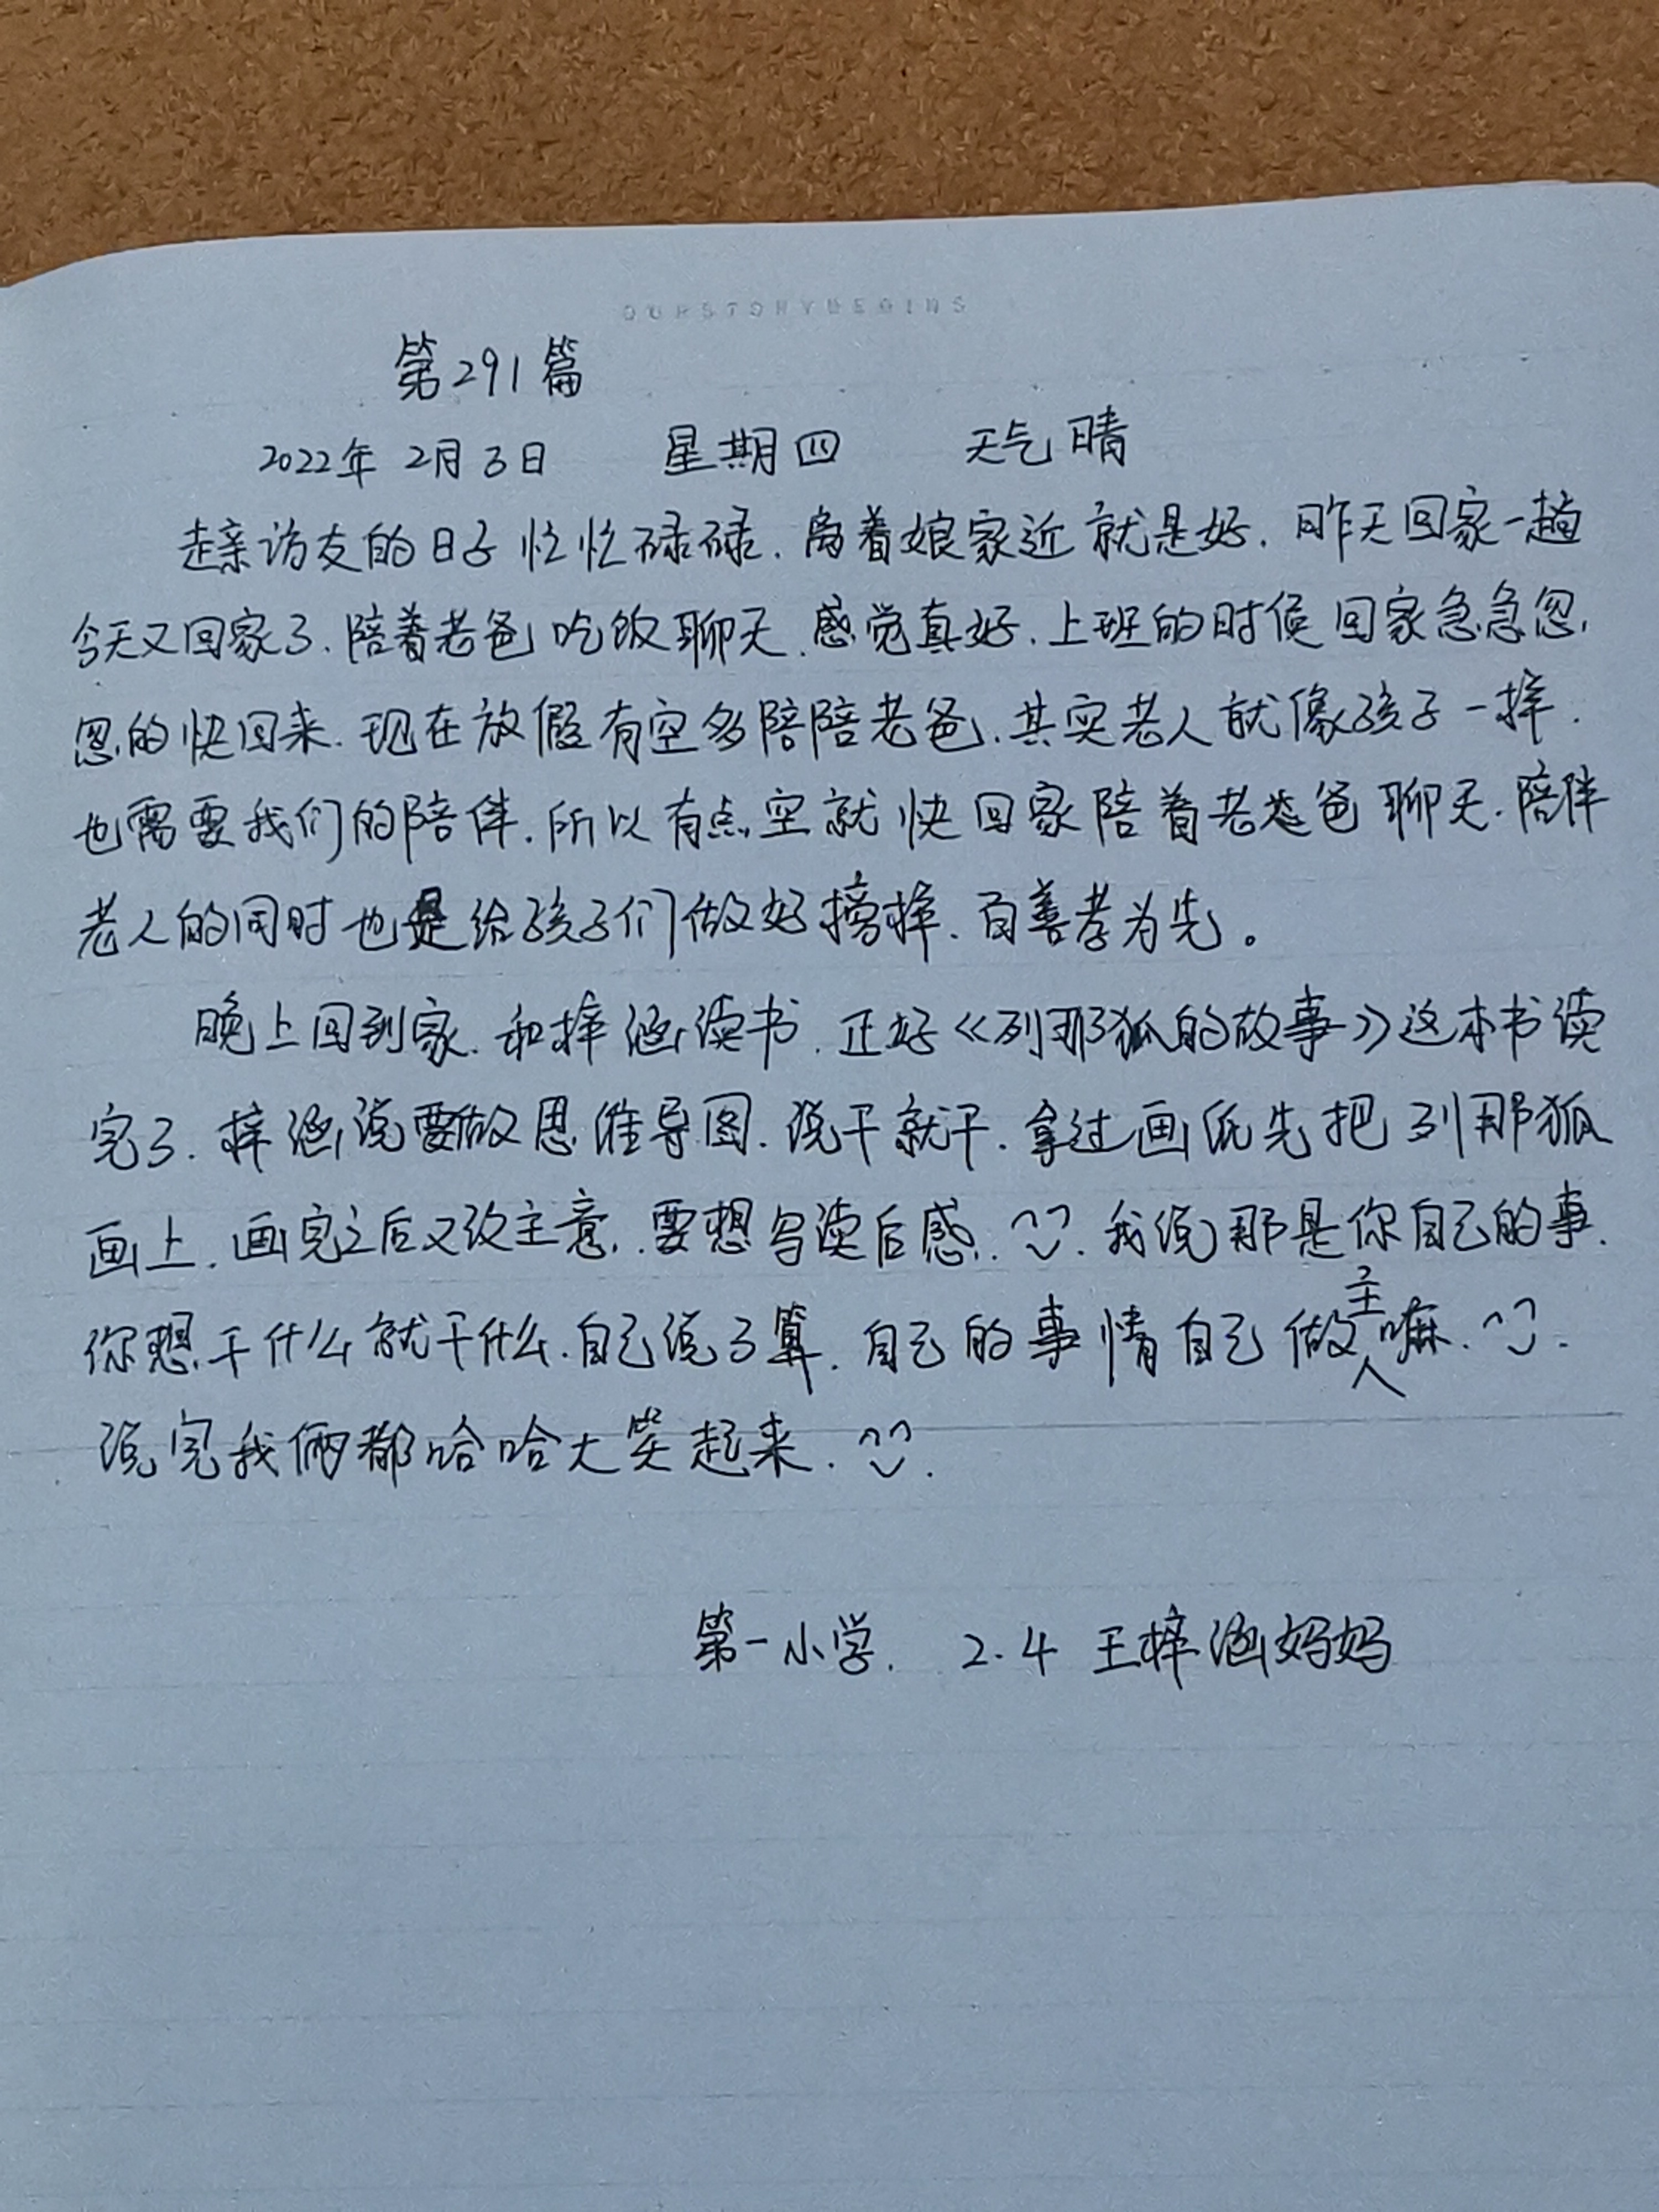 OURSTORYBEGINS
第291篇
2022年 2月3日 星期四 天气晴
走亲访友的日子忙忙碌碌.离着娘家近就是好.昨天回家一趟
今天又回家了.陪着老爸吃饭聊天.感觉真好.上班的时候回家急急忽
忽的快回来.现在放假有空多陪陪老爸.其实老人就像孩子一样.
也需要我们的陪伴.所以有点空就快回家陪着老爸聊天.陪伴
老人的同时也是给孩子们做好榜样.百善孝为先。
晚上回到家.和梓涵读书.正好《列那狐的故事》这本书读
完了.梓涵说要做思维导图.说干就干.拿过画纸先把列那狐
画上.画完之后又改主意.要想写读后感.我说那是你自己的事.
你想干什么就干什么.自己说了算.自己的事情自己做主嘛.
说完我俩都哈哈大笑起来.
第一小学. 2.4 王梓涵妈妈